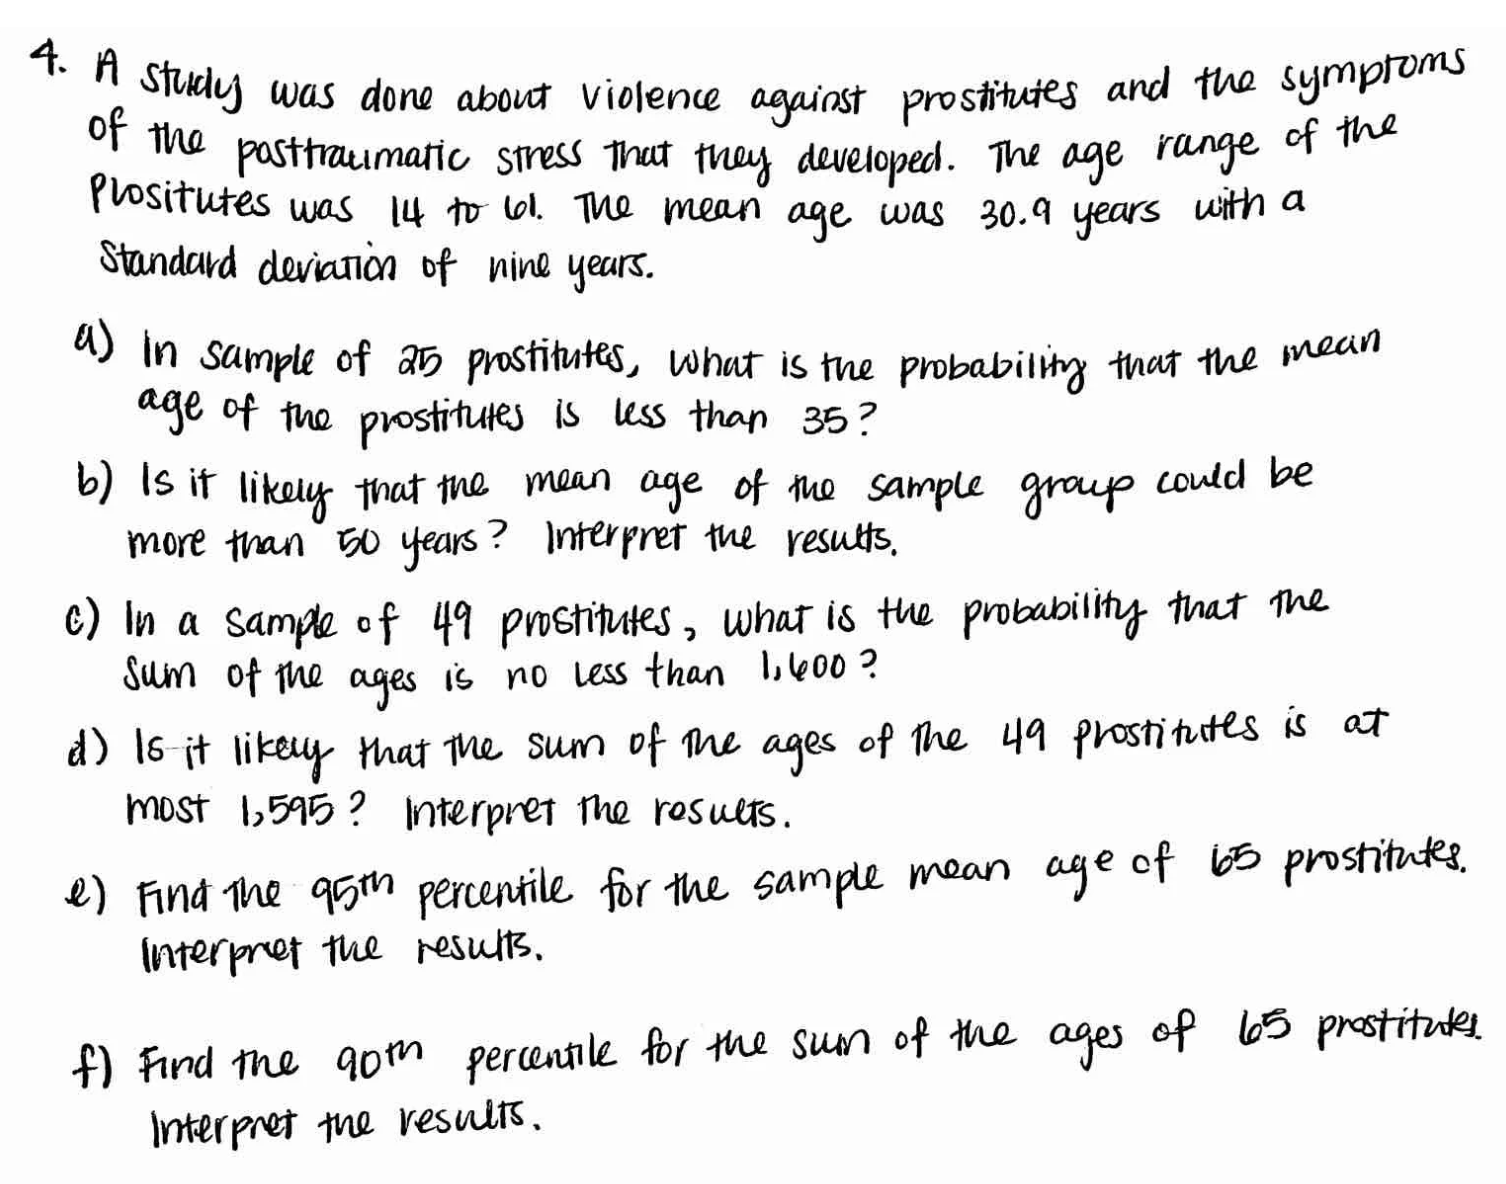 4. A study was done about violence against prostitutes and the symptoms
of the posttraumatic stress that they developed. The age range of the
Prositutes was 14 to 61. The mean age was 30.9 years with a
Standard deviation of nine years.
a) In sample of 25 prostitutes, what is the probability that the mean
age of the prostitutes is less than 35?
b) Is it likely that the mean age of the sample group could be
more than 50 years? Interpret the results.
c) In a sample of 49 prostitutes, what is the probability that the
sum of the ages is no less than 1,600?
d) Is it likely that the sum of the ages of the 49 prostitutes is at
most 1,595? Interpret the results.
e) Find the 95th percentile for the sample mean age of 65 prostitutes.
Interpret the results.
f) Find the 90th percentile for the sum of the ages of 65 prostitutes.
Interpret the results.